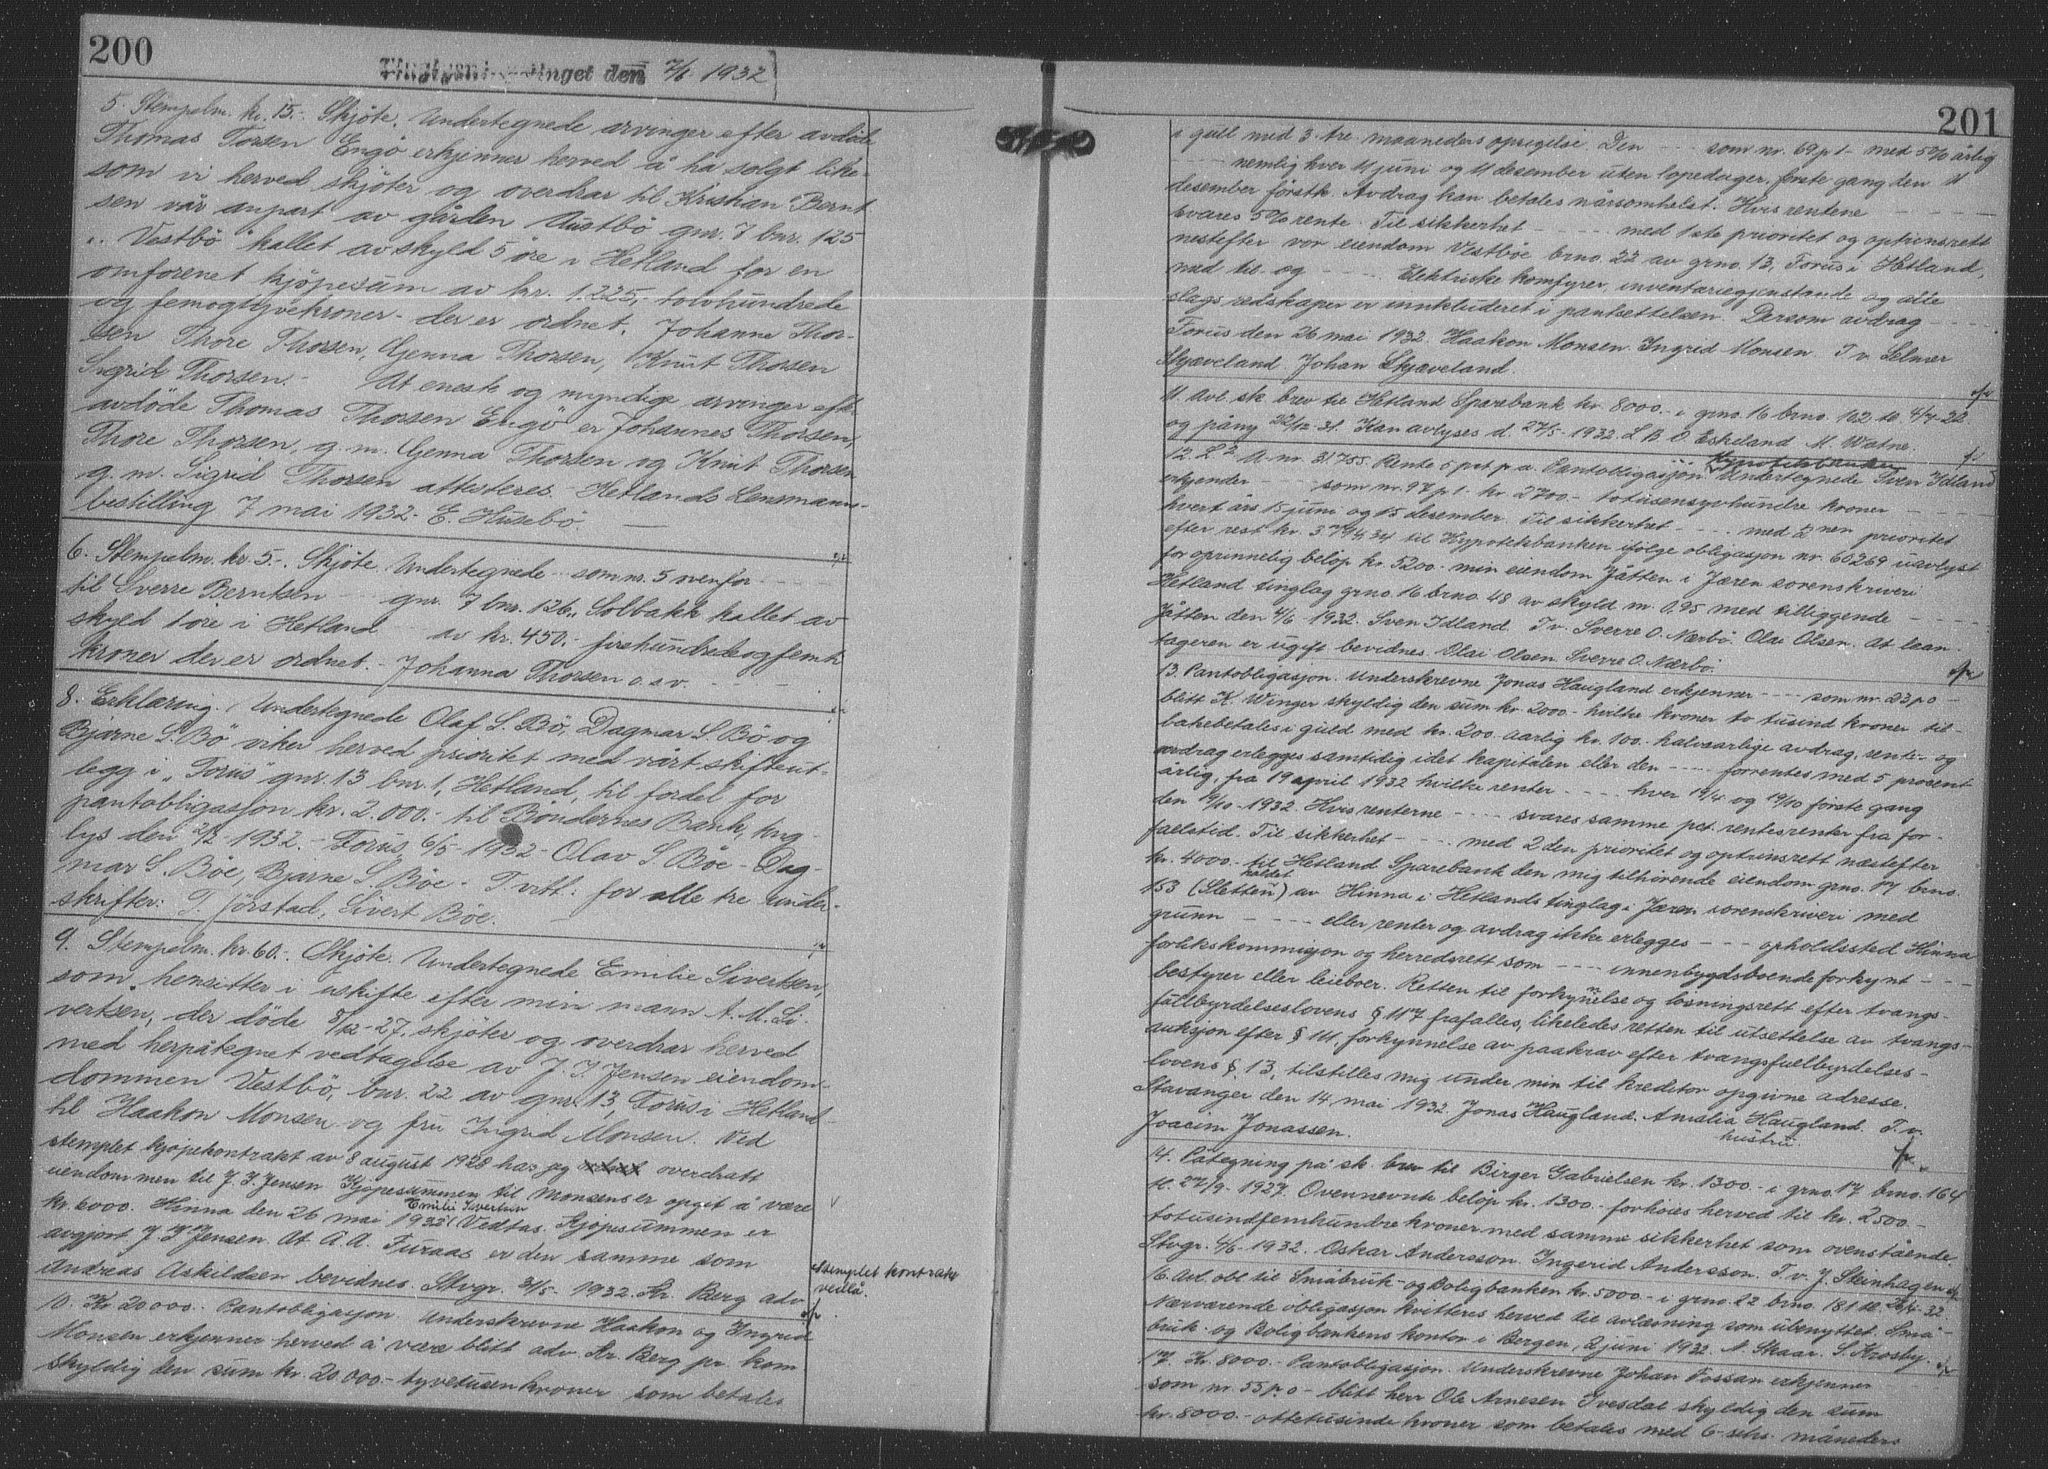 200
inget den 7/6 1932
5. Stempelm. kr. 15.- Skjöte. Undertegnede arvinger efter avdöde
Thomas Torsen Engö erkjenner herved å ha solgt like-
som vi herved skjöter og overdrar til Kristian Bernt
sen vår anpart av gården Austbö gnr. 7 bnr. 125
„Vestbö" kallet av skyld 5 öre i Hetland for en
omforenet kjöpesum av kr. 1.225,- tolvhundrede
og femogtyvekroner - der er ordnet. Johanne Thor-
sen Thore Thorsen, Genna Thorsen, Knut Thorsen
Sigrid Thorsen.- At eneste og myndige arvinger eft.
avdöde Thomas Thorsen Engö er Johannes Thorsen,
Thore Thorsen, g.m. Genna Thorsen og Knut Thorsen
g.m. Sigrid Thorsen attesteres - Hetlands Lensmanns-
bestilling 7 mai 1932- E. Husebö.
6. Stempelm. kr. 5.-. Skjöte. Undertegnede - som nr. 5 ovenfor
til Sverre Berntsen - - gnr. 7 bnr. 126 „Solbakk kallet av
skyld 1 öre i Hetland - av kr. 450.- firehundredeogfemti
kroner der er ordnet. - Johanna Thorsen o.s.v. - -
8. Erklæring. Undertegnede Olaf S. Bö, Dagmar S Bö og
Bjarne S. Bö viker herved prioritet med vårt skifteut-
legg i „Forus" gnr. 13 bnr. 1, Hetland, til fordel for
pantobligasjon kr. 2.000.- til Böndernes Bank, tng-
lys den 2/2-1932.- Forus 6/5-1932- Olav S. Böe - Dag-
mar S. Böe, Bjarne S. Böe - T. vitt: for alle tre under-
skrifter: T. Jörstad, Sivert Böe.
9. Stempelm. kr. 60.- Skjöte. Undertegnede Emilie Sivertsen,
som hensitter i uskifte efter min mann A. M. Si-
vertsen, der döde 8/12-27, skjöter og overdrar herved
med herpåtegnet vedtagelse av J. J. Jensen eiendom-
dommen Vestbö, bnr. 22 av gnr. 13, Forus i Hetland
til Haakon Monsen og fru Ingrid Monsen. Ved
stemplet kjöpekontrakt av 8 august 1928 har jeg overdratt
eiendommen til J. J. Jensen Kjöpesummen til Monsens er opgit å være
kr. 6000. Hinna den 26 mai 1932 Emilie Sivertsen Vedtas. Kjöpesummen er
avgjort J. J. Jensen. At A. A. Furaas er den samme som
Andreas Askildsen bevidnes. Stvgr. 31/5-1932. Ar. Berg adv
Stemplet kontrakt
veilå.
10. Kr 20000.- Pantobligasjon Underskrevne Haakon og Ingrid
Monsen erkjenner herved å være blitt adv. Ar. Berg pr. kom
skyldig den sum kr. 20.000.- tyvetusenkroner som betales
201
i gull med 3-tre maaneders opsigelse. Den - - - som nr. 69 p 1- med 5% årlig
- - nemlig hver 11 juni og 11 desember uten löpedager, förste gang den 11
desember förstk. Avdrag kan betales nårsomhelst. Hvis rentene - - -
svares 5% rente. Til sikkerhet - - - med 1ste prioritet og optrinsrett
nestefter vor eiendom Vestböe brno. 22 av grno. 13, Forus i Hetland,
med til og - - - Elektriske komfyrer, inventariegjenstande og alle
slags redskaper er innkluderet i pantsettelsen. Dersom avdrag - - -
Forus den 26 mai 1932. Haakon Monsen. Ingrid Monsen. T. v. Selmer
Skjæveland. Johan Skjæveland.
11. Avl. sk. brev til Hetland Sparebank kr. 8000.- i grno. 16 brno. 162 tl. 4/4-22
og påny 22/12-31. Kan avlyses d. 27/5-1932. L. B. O. Eskeland M. Watne.
12. L² A. nr. 31755. Rente 5 pct p.a. Pantobligasjon Hypotekbanken Undertegnede Sven Idland
erkjender - - - som nr. 97 p 1- kr 2700- totusensyvhundre kroner - - -
hvert års 15 juni og 15 desember. Til sikkerhet - - - med 2 nen prioritet
efter rest kr. 3794,34 til Hypotekbanken ifölge obligasjon nr. 60269 uavlyst
for oprinnelig belöp kr. 5200.- min eiendom Jåtten i Jæren sorenskriveri
Hetland tinglag grno. 16 brno. 48 av skyld m. 0,95 med tilliggende - - -
Jåtten den 4/6-1932. Sven Idland. T. v. Sverre O. Nærbö. Olai Olsen. At laan-
tageren er ugift bevidnes. Olai Olsen Sverre O. Nærbö.
13. Pantobligasjon. Underskrevne Jonas Haugland erkjenner - - - som nr. 23 p. o -
blitt K. Winger skyldig den sum kr. 2000.- hvilke kroner to tusind kroner til-
bakebetales i guld med kr. 200.- aarlig kr. 100.- halvaarlige avdrag, rente- og
avdrag erlegges samtidig idet kapitalen eller den - - - forrentes med 5 prosent
årlig, fra 19 april 1932 hvilke renter - - - hver 19/4 og 19/10 förste gang
den 19/10-1932. Hvis renterne - - - svares samme pct. rentesrenter fra for-
faldstid. Til sikkerhet - - - med 2 den prioritet og optrinsrett næstefter
kr. 4000.- til Hetland Sparebank den mig tilhörende eiendom grno. 17 brno.
153 (Sletten) kaldet av Hinna i Hetlands tinglag i Jæren sorenskriveri med
grunn - - - eller renter og avdrag ikke erlegges - - - opholdssted Hinna
forlikskommisjon og herredsrett som - - - innenbygdsboende forkynt - - -
bestyrer eller leieboer. Retten til forkynnelse og losningsrett efter tvangs-
fullbyrdelseslovens § 117 frafalles, likeledes retten til utsettelse av tvangs-
auksjon efter § 111, forkynnelse av paakrav efter tvangsfullbyrdelses-
lovens § 13, tilstilles mig under min til kreditor opgivne adresse.
Stavanger den 14 mai 1932. Jonas Haugland. Amalia Haugland hustru. T. v.
Joacim Jonassen.
14. Påtegning på sk. brev til Birger Gabrielsen kr. 1300.- i grno. 17 brno. 164
tl. 27/9-1927. Ovennevnte belöp kr. 1300.- forhöies herved til kr. 2500.-
totusindfemhundre kroner med samme sikkerhet som ovenstående.
Stvgr. 4/6-1932. Oskar Andersson. Ingerid Andersson. T. v. J. Steinhagen
16. Avl. obl. til Småbruk- og Boligbanken kr. 5000.- i grno. 22 brno. 181 tl. 26/4-32.
Nærværende obligasjon kvitteres herved til avlæsning som ubenyttet. Små-
bruk- og Boligbankens kontor i Bergen, 2 juni 1932. N. Skaar. S. Krosby.
17. Kr. 8000.- Pantobligasjon. Underskrevne Johan Fossan erkjenner
som nr. 55 p. o - blitt herr Ole Arnesen Ivesdal skyldig den sum
kr. 8000.- ottetusinde kroner som betales med 6-seks- måneders